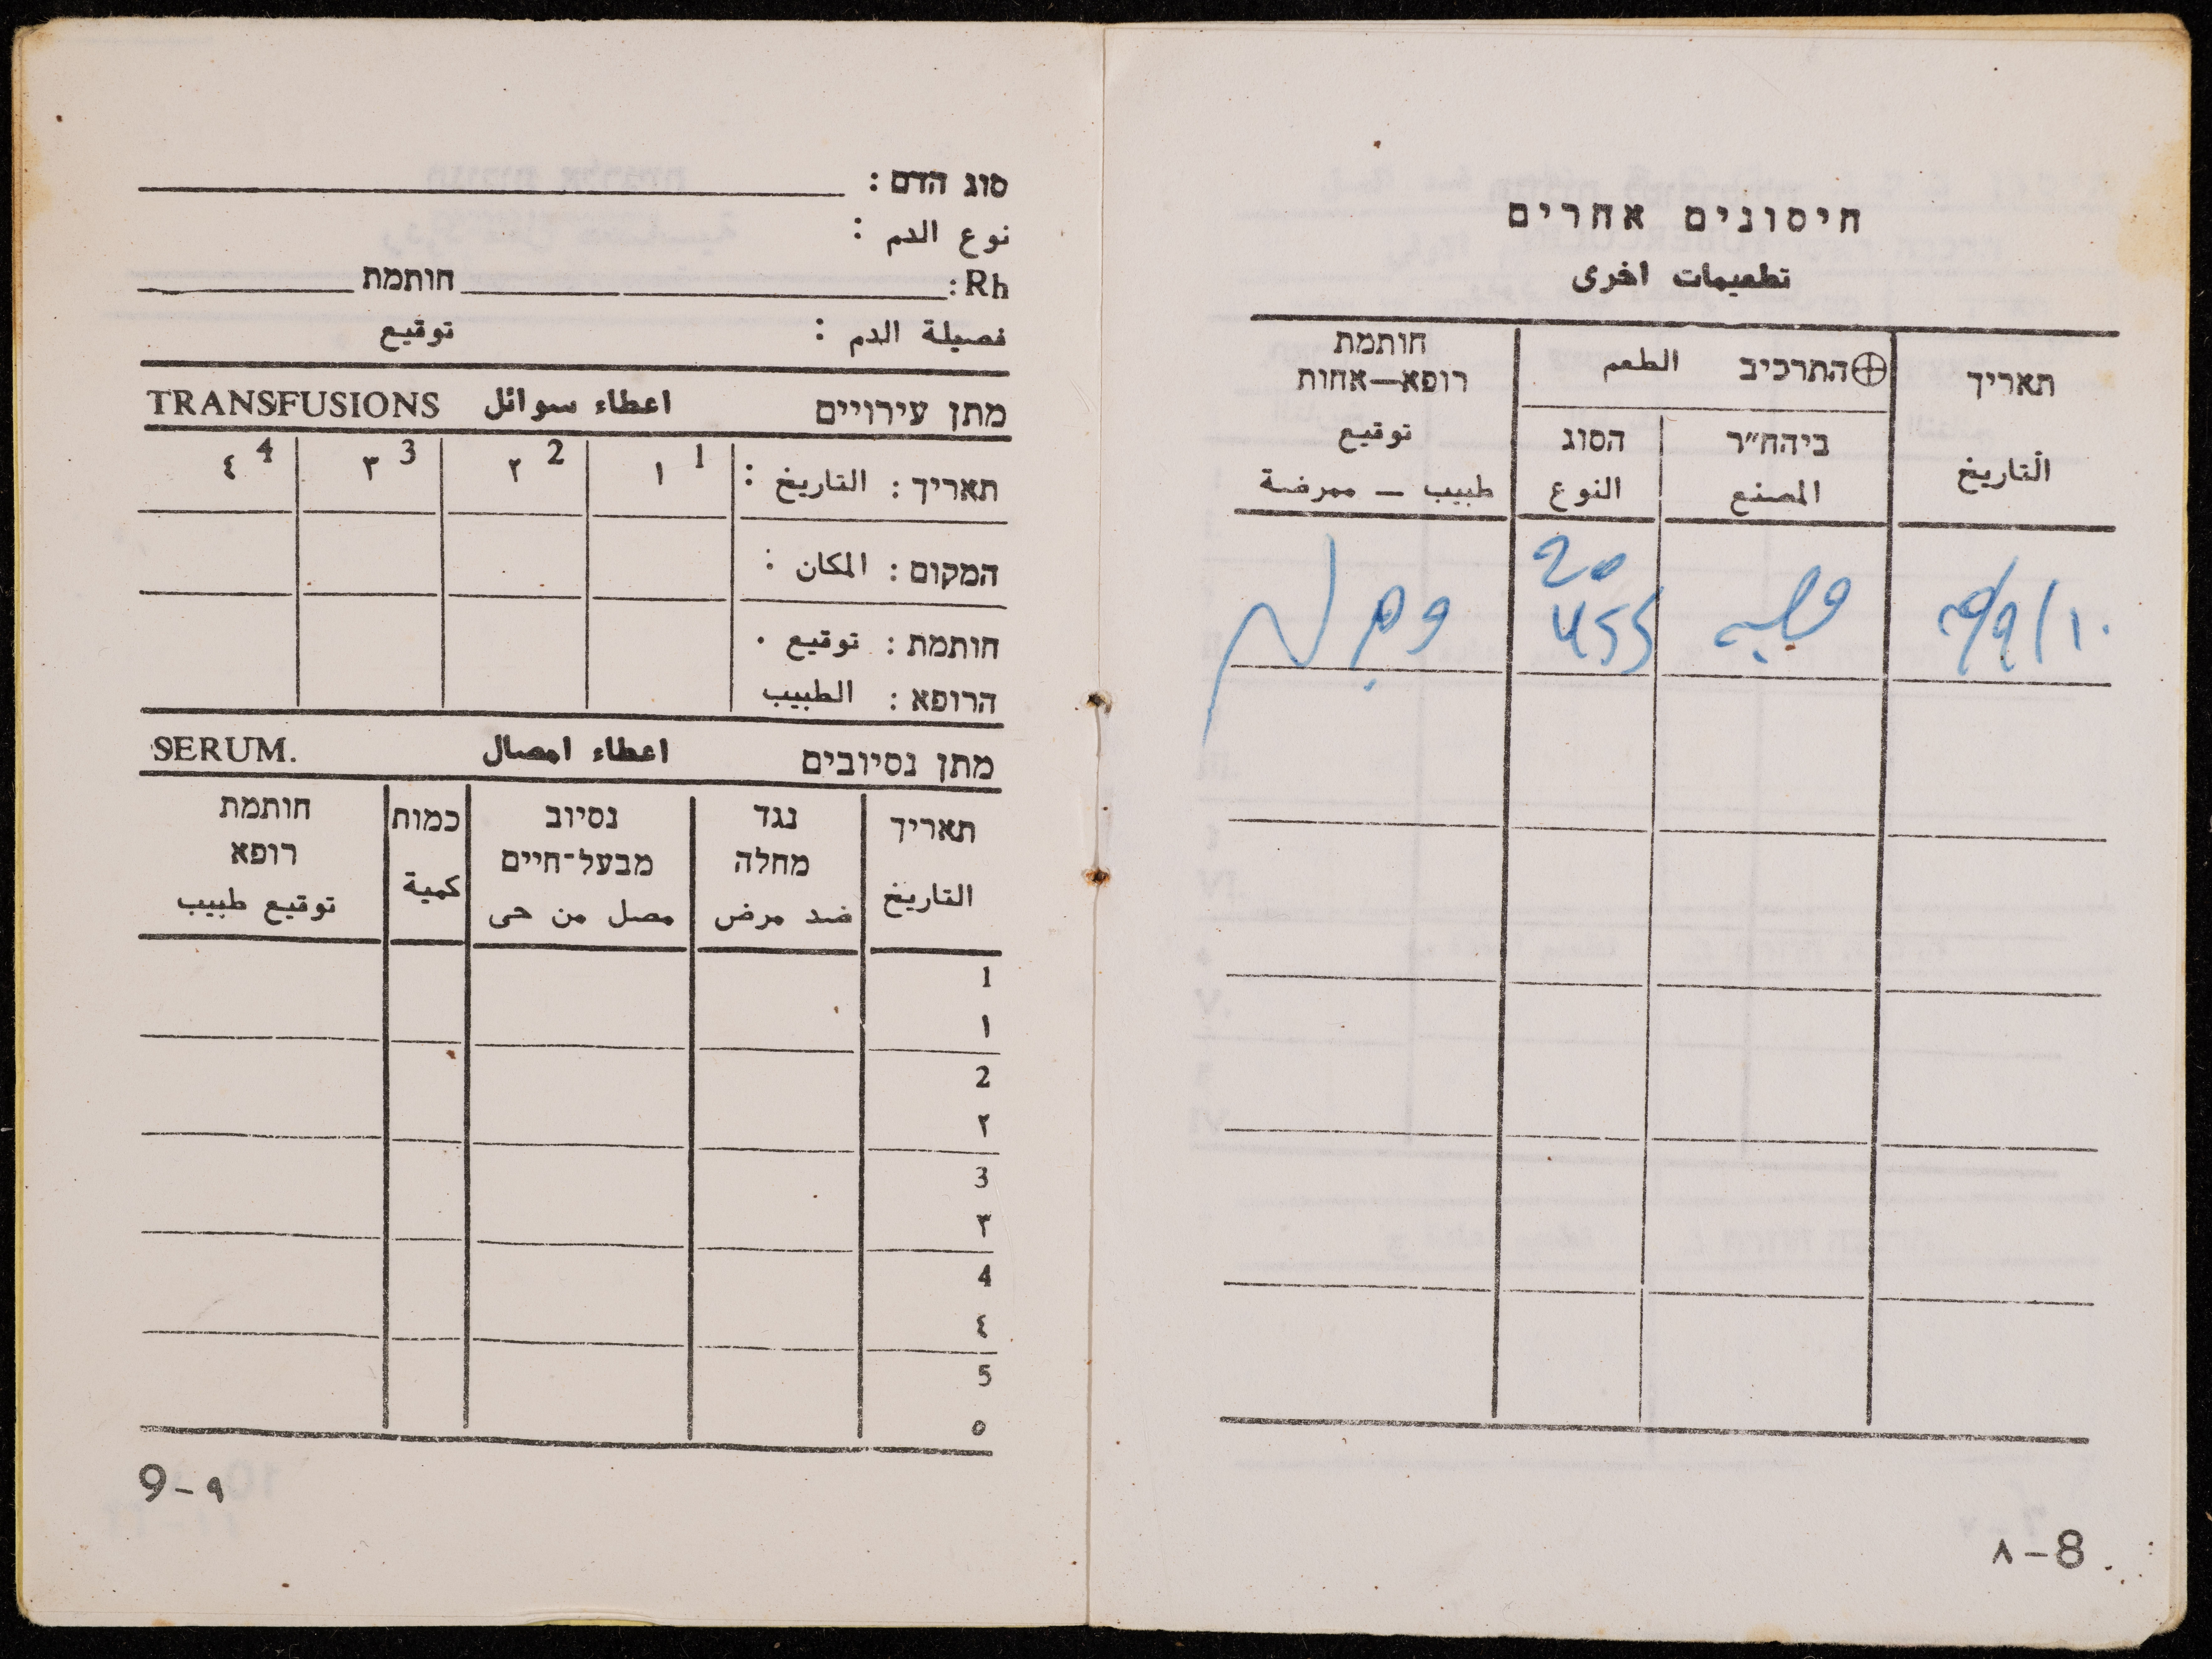 חיסונים אחרים
تطعيمات اخرى
תאריך
التاريخ
התרכיב الطعم
ביהח״ר
المصنع
הסוג
النوع
חותמת
רופא—אחות
توقيع
طبيب – ممرضة
20
455
٨-8
סוג הדם :
نوع الدم :
Rh: חותמת
فصيلة الدم : توقيع
מתן עירויים اعطاء سوائل TRANSFUSIONS
תאריך : التاريخ : 1 ١ 2 ٢ 3 ٣ 4 ٤
המקום : المكان :
חותמת : توقيع .
הרופא : الطبيب
מתן נסיובים اعطاء امصال SERUM.
תאריך
التاريخ
נגד
מחלה
ضد مرض
נסיוב
מבעל-חיים
مصل من حى
כמות
كمية
חותמת
רופא
توقيع طبيب
1
١
2
٢
3
٣
4
٤
5
٥
9-٩